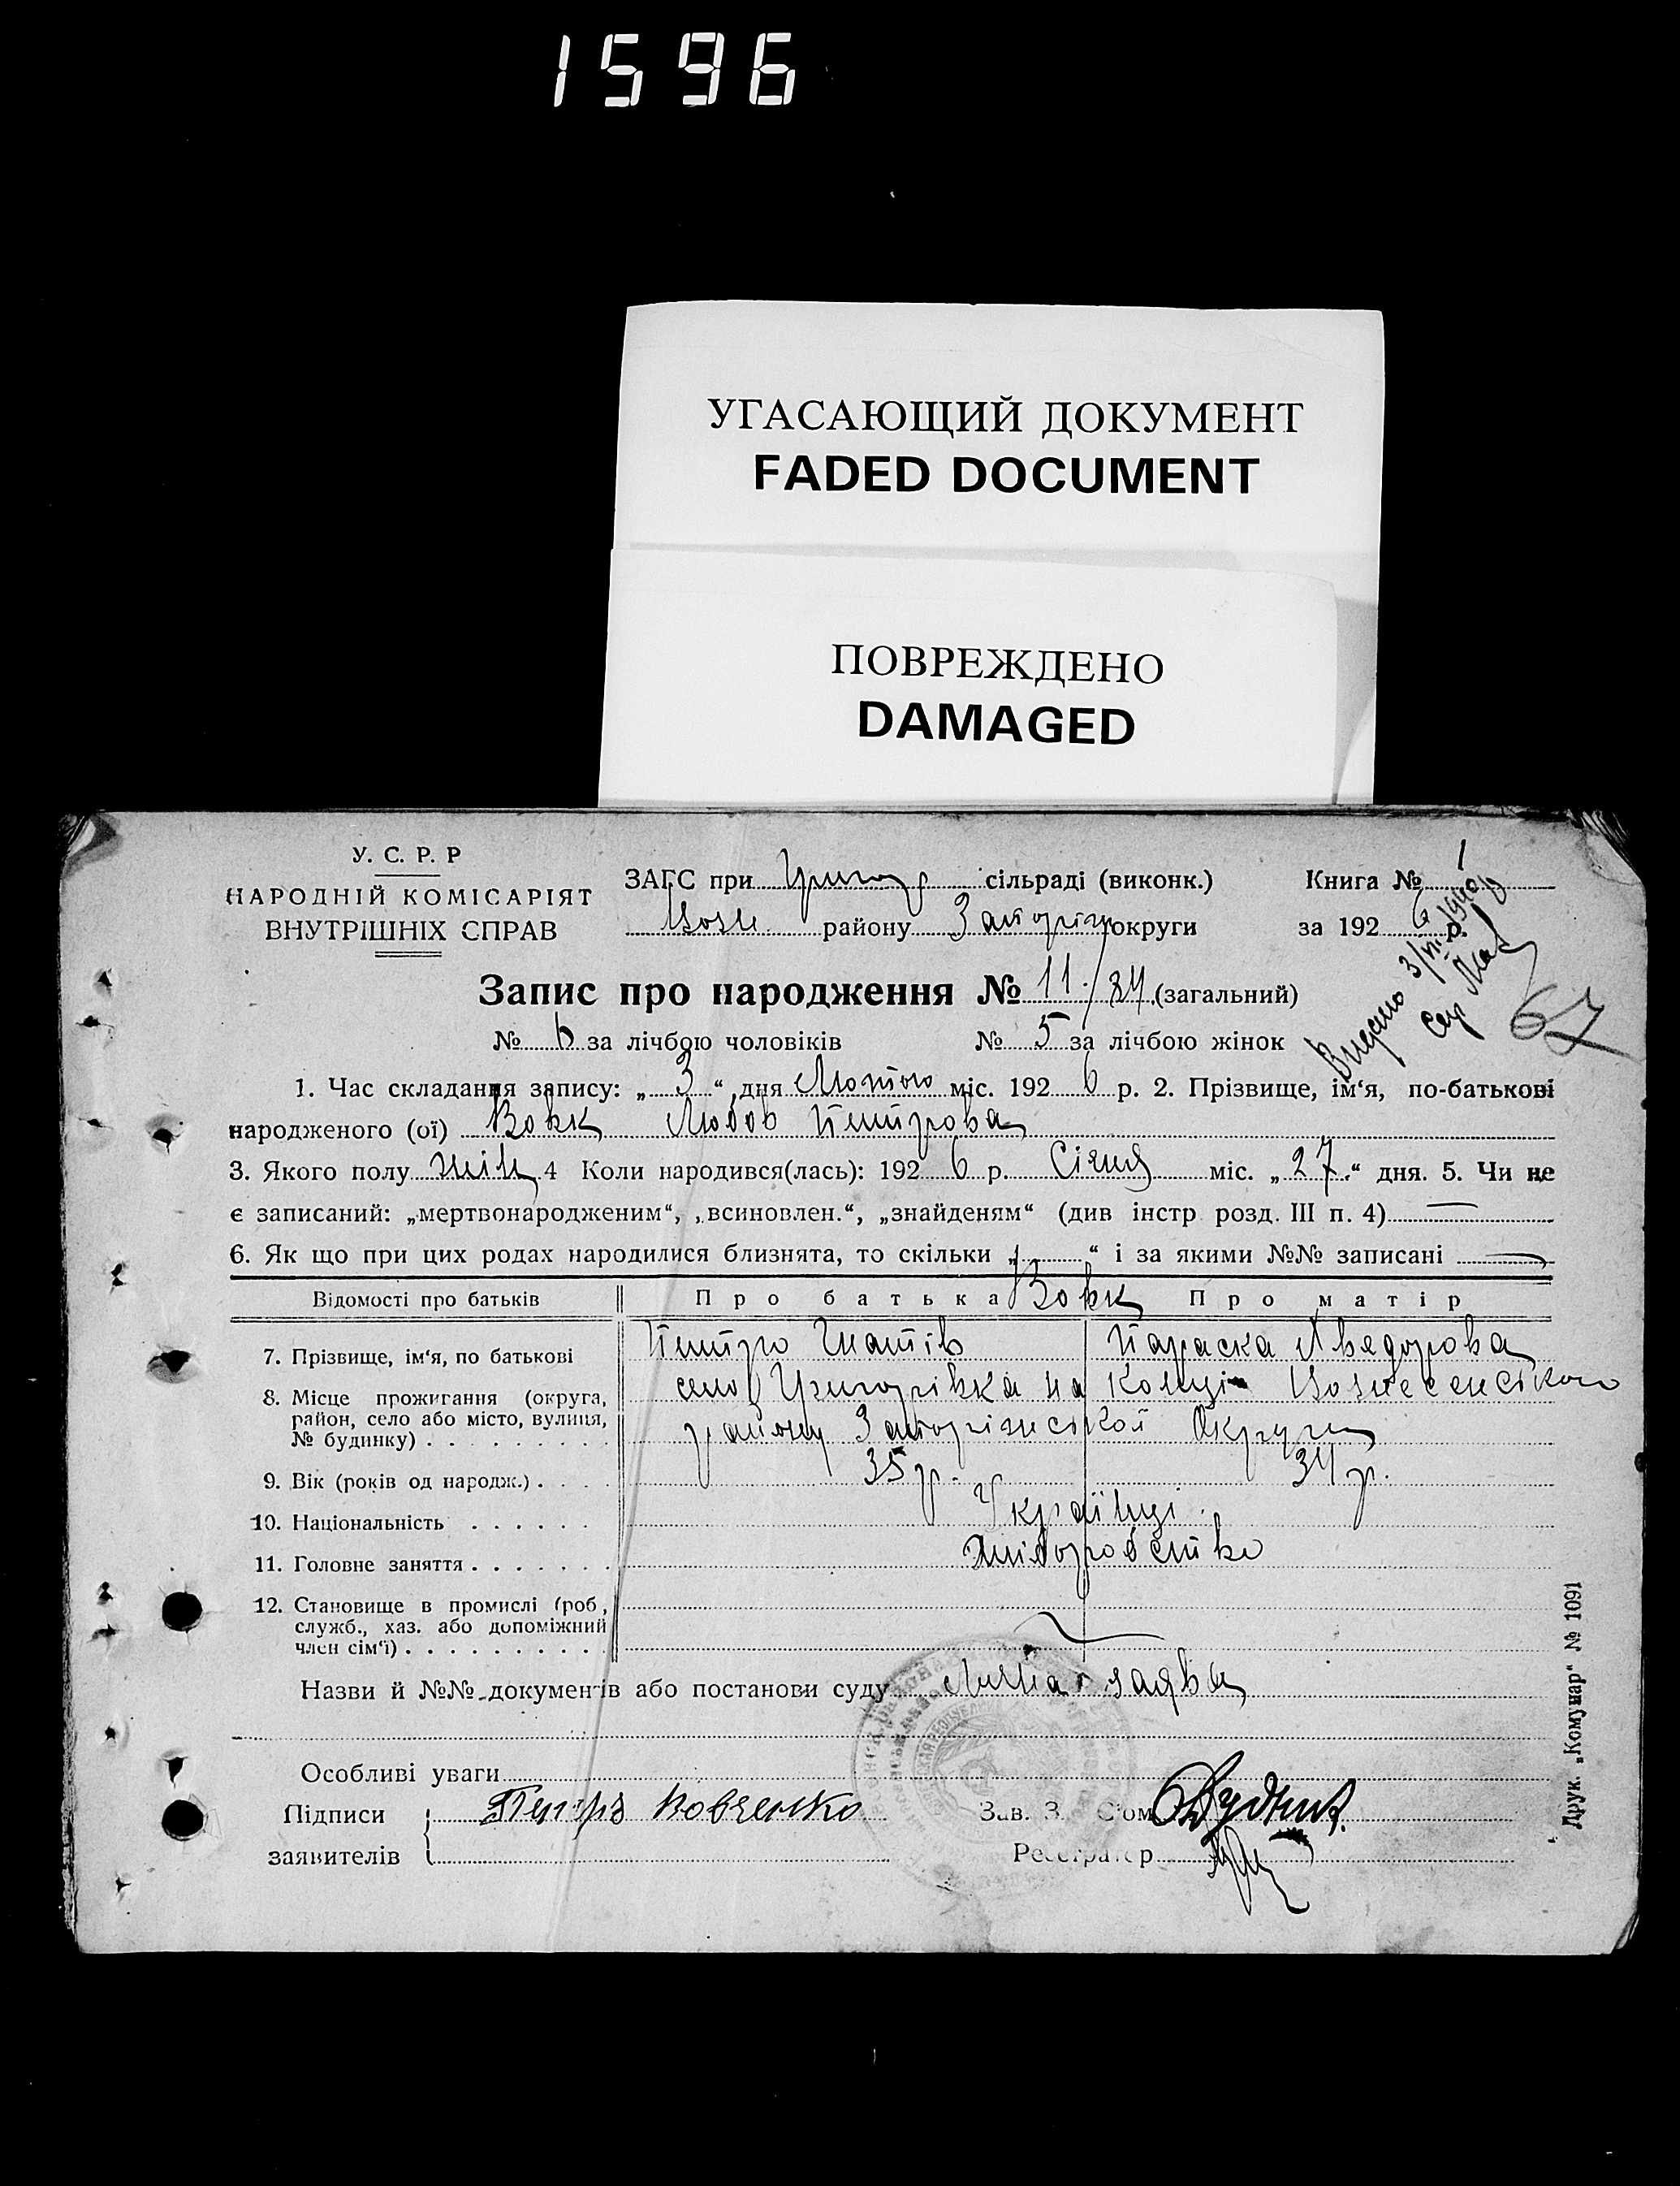 1596
УГАСАЮЩИЙ ДОКУМЕНТ
FADED DOCUMENT
ПОВРЕЖДЕНО
DAMAGED
У. С. Р. Р
НАРОДНІЙ КОМІСАРІЯТ
ВНУТРІШНІХ СПРАВ
ЗАГС при Григор сільраді (виконк.)
Возн району Запоріж округи
Книга № 1
за 192 6 р.
Видано 3/VI 1940
67
Запис про народження № 11/84 (загальний)
№ 6 за лічбою чоловіків № 5 за лічбою жінок
1. Час складання запису: „ 3 “ дня Лютого міс. 192 6 р. 2. Прізвище, ім‘я, по-батькові
народженого (ої) Вовк Любов Петрова
3. Якого полу жін 4 Коли народився(лась): 192 6 р. Січня міс. „ 27 “ дня. 5. Чи не
є записаний: „мертвонародженим“, „всиновлен.“, „знайденям“ (див інстр розд. III п. 4) —
6. Як що при цих родах народилися близнята, то скільки „ “ і за якими №№ записані —
Відомості про батьків Про батька Вовк Про матір
7. Прізвище, ім‘я, по батькові Петро Гнатів Параска Хведорова
8. Місце прожигання (округа, район, село або місто, вулиця, № будинку) село Григорівка на Конці Вознесенського
району Запоріжської Округи
9. Вік (років од народж.) 35 р. 34 р.
10. Національність Українці
11. Головне заняття Хліборобство
12. Становище в промислі (роб, служб., хаз. або допоміжний член сім‘ї)
Назви й №№ документів або постанови суду заява
Особливі уваги
Підписи Петръ Зав. З. С‘ом
заявителів Реєстратор
Друк. „Комунар“ № 1091